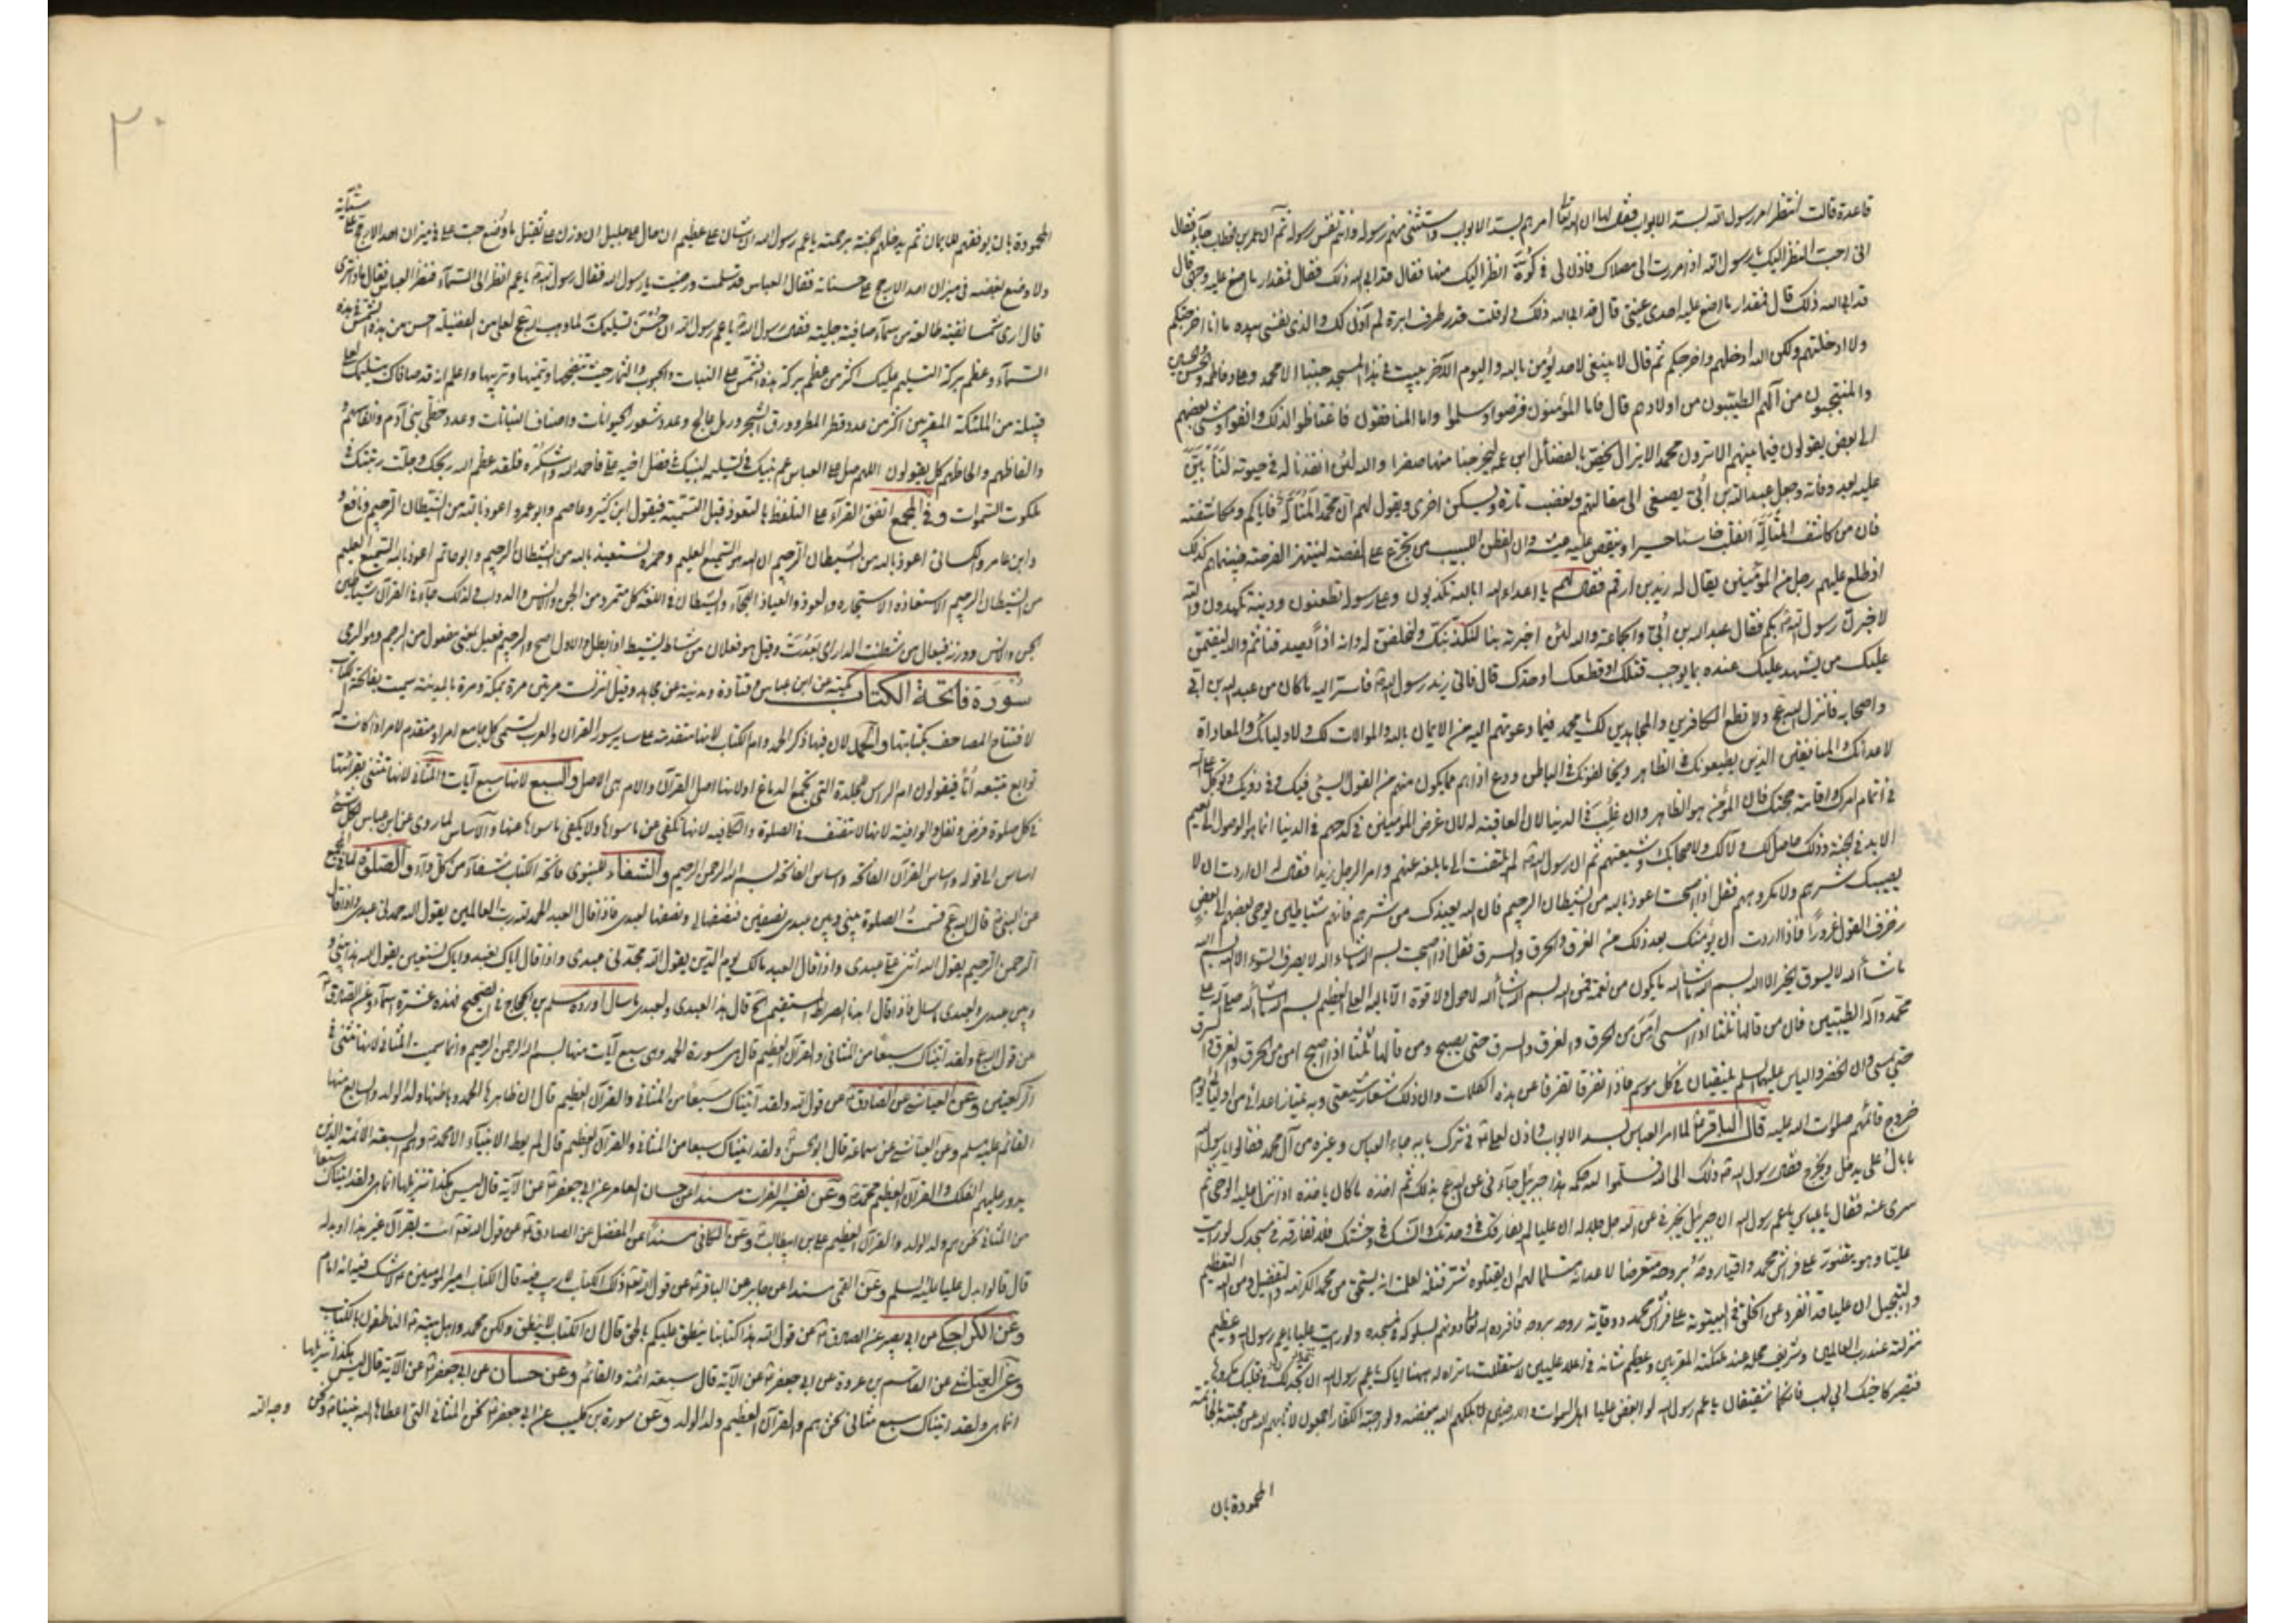 قاعدة قالت انتظر امر رسول الله بسد الابواب فقال لها ان الله تعالى امرهم بسد الابواب واستثنى منهم رسوله وانتم نفس رسوله ثم ان عمر بن خطاب جاء فقال
انى احب النظر اليك يا رسول الله اذا مررت الى مصلاك فاذن لى فى كوة انظر اليك منها فقال قد ابى الله ذلك فقال فمقدار ما اضع عليه وجهى قال
قد ابى الله ذلك قال فمقدار ما اضع عليه احدى عينى قال قد ابى الله ذلك ولو قلت قدر طرف ابرة لم آذن لك والذى نفسى بيده ما انا اخرجتكم
ولا ادخلتهم ولكن الله ادخلهم واخرجكم ثم قال لا ينبغى لاحد يؤمن بالله واليوم الآخر يبيت فى هذا المسجد جنبا الا محمد وعلى وفاطمة والحسن والحسين
والمنتجبون من آلهم الطيبون من اولادهم قال فاما المؤمنون فرضوا وسلموا واما المنافقون فاغتاظوا لذلك وانفوا ومشى بعضهم
الى بعض يقولون فيما بينهم الا ترون محمدا لا يزال يخص بالفضائل ابن عمه ليخرجنا منها صفرا والله لئن انفذنا له فى حيوته لنأبين
عليه بعد وفاته وجعل عبد الله بن أبى يصغى الى مقالتهم ويغضب تارة ويسكن اخرى ويقول لهم ان محمدا لمتأله فاياكم ومكاشفته
فان من كاشف المتأله انقلب خاسئا حسيرا وينغص عليه عيشه وان الفطن اللبيب من تجرع على الغصة لينتهز الفرصة فبينا هم كذلك
اذ طلع عليهم رجل من المؤمنين يقال له زيد بن ارقم فقال لهم يا اعداء الله ابالله تكذبون وعلى رسوله تطعنون ودينه تكيدون والله
لاخبرن رسول الله بكم فقال عبد الله بن أبى والجماعة والله لئن اخبرته بنا لنكذبنك ولنحلفن له وانه اذا يصدقنا ثم والله لنقيمن
عليك من يشهد عليك عنده بما يوجب قتلك او قطعك او حدك قال فاتى زيد رسول الله فاسر اليه ما كان من عبد الله بن ابى
واصحابه فانزل الله عج ولا تطع الكافرين والمجاهدين لك يا محمد فيما دعوتهم اليه من الايمان بالله والموالات لك ولاوليائك والمعاداة
لاعدائك والمنافقين الذين يطيعونك فى الظاهر ويخالفونك فى الباطن ودع اذاهم مما يكون منهم من القول السيئ فيك وفى ذويك وتوكل على الله
فى اتمام امرك واقامة حجتك فان المؤمن هو الظاهر وان غلب فى الدنيا لان العاقبة له لان غرض المؤمنين فى كدحهم فى الدنيا انما هو الوصول الى نعيم
الابد فى الجنة وذلك حاصل لك ولآلك ولاصحابك وشيعتهم ثم ان رسول الله لم يلتفت الى ما بلغه عنهم وامر الرجل زيدا فقال له ان اردت ان لا
يصيبك شرهم ولا مكروههم فقل اذا اصبحت اعوذ بالله من الشيطان الرجيم فان الله يعيذك من شرهم فانهم شياطين يوحى بعضهم الى بعض
زخرف القول غرورا فاذا اردت ان يؤمنك بعد ذلك من الغرق والحرق والسرق فقل اذا اصبحت بسم الله ما شاء الله لا يصرف السوء الا الله بسم الله
ما شاء الله لا يسوق الخير الا الله بسم الله ما شاء الله ما يكون من نعمة فمن الله بسم الله ما شاء الله لا حول ولا قوة الا بالله العلى العظيم بسم الله ما شاء الله صلى الله على
محمد وآله الطيبين فان من قالها ثلثا اذا امسى امن من الحرق والغرق والسرق حتى يصبح ومن قالها ثلثا اذا اصبح امن من الحرق والغرق والسرق
حتى يمسى وان الخضر والياس عليهما السلم يلتقيان فى كل موسم فاذا تفرقا تفرقا عن هذه الكلمات وان ذلك شعار شيعتى وبه يمتاز اعدائى من اوليائى يوم
خروج قائمهم صلوات الله عليه قال الباقر لما امر العباس بسد الابواب واذن لعلى فى ترك بابه جاء العباس وغيره من آل محمد فقالوا يا رسول الله
ما بال على يدخل ويخرج فقال رسول الله ذلك الى الله فسلموا لله حكمه هذا جبرئيل جاءنى عن الله عج بذلك ثم اخذه ما كان ياخذه اذا نزل عليه الوحى ثم
سرى عنه فقال يا عباس يا عم رسول الله ان جبرئيل يخبرنى عن الله جل جلاله ان عليا لم يفارقك فى وحدتك وآنسك فى وحشتك فلا تفارقه فى مسجدك لو رايت
عليا وهو يتضور على فراش محمد واقيا روحه بروحه متعرضا لاعدائه مستسلما لهم ان يقتلوه شر قتلة لعلمت انه يستحق من محمد الكرامة والتفضيل ومن الله التعظيم
والتبجيل ان عليا قد انفرد عن الخلق فى البيتوتة على فراش محمد ووقاية روحه بروحه فافرده الله تعالى دونهم بسلوكه فى مسجده ولو رايت عليا يا عم رسول الله وعظيم
منزلته عند رب العالمين وشريف محله عند ملئكته المقربين وعظيم شانه فى اعلا عليين لاستقللت ما تراه له ههنا اياك يا عم رسول الله ان تجد له فى قلبك مكروها
فتصير كاخيك ابى لهب فانكما شقيقان يا عم رسول الله لو ابغض عليا اهل السموات والارضين لاهلكهم الله ببغضه ولو احبه الكفار اجمعون لاثابهم الله عن محبته بالخاتمة
المحمودة بان
٢٠
المحمودة بان يوفقهم للايمان ثم يدخلهم الجنة برحمته يا عم رسول الله ان شان على عظيم ان حال على جليل ان وزن على ثقيل ما وضع حب على فى ميزان احد الا رجح على سيئاته
ولا وضع بغضه فى ميزان احد الا رجح على حسناته فقال العباس قد سلمت ورضيت يا رسول الله فقال رسول الله يا عم انظر الى السماء فنظر العباس فقال ماذا ترى
قال ارى شمسا نقية طالعة من سماء صافية جلية فقال رسول الله يا عم رسول الله ان حسن تسليمك لما وهب الله عج لعلى من الفضيلة احسن من هذه الشمس فى هذه
السماء وعظم بركة التسليم عليك اكثر من عظم بركة هذه الشمس على النبات والحبوب والثمار حيث تنضجها وتنميها وتربيها واعلم انه قد صافاك بتسليمك لعلى
قبيلة من الملئكة المقربين اكثر من عدد قطر المطر وورق الشجر ورمل عالج وعدد شعور الحيوانات واصناف النباتات وعدد خطى بنى آدم وانفاسهم
والفاظهم والحاظهم كل يقولون اللهم صل على العباس عم نبيك فى تسليمه لنبيك فضل اخيه على فاحمد الله واشكره فلقد عظم الله ربحك وجلت رتبتك فى
ملكوت السموات وفى المجمع اتفق القراء على التلفظ بالتعوذ قبل التسمية فيقول ابن كثير وعاصم وابو عمرو اعوذ بالله من الشيطان الرجيم ونافع
وابن عامر والكسائى اعوذ بالله من الشيطان الرجيم ان الله هو السميع العليم وحمزة نستعيذ بالله من الشيطان الرجيم وابو حاتم اعوذ بالله السميع العليم
من الشيطان الرجيم الاستعاذة الاستجارة والعوذ والعياذ اللجاء والشيطان فى اللغة كل متمرد من الجن والانس والدواب لذلك جاء فى القرآن شياطين
الجن والانس ووزنه فيعال من شطنت الدار اى بعدت وقيل هو فعلان من شاط يشيط اذا بطل والاول اصح والرجيم فعيل بمعنى مفعول من الرجم وهو الرمى
سورة فاتحة الكتاب مكية عن ابن عباس وقتادة ومدنية عن مجاهد وقيل انزلت مرتين مرة بمكة ومرة بالمدينة سميت بفاتحة الكتاب
لافتتاح المصاحف بكتابتها والحمد لان فيها ذكر الحمد وام الكتاب لانها متقدمة على ساير سور القران والعرب تسمى كل جامع امر او متقدم لامر اذا كانت له
توابع تتبعه أما فيقولون ام الراس للجلدة التى تجمع الدماغ او لانها اصل القرآن والام هى الاصل والسبع لانها سبع آيات والمثانى لانها تثنى بقرائتها
فى كل صلوة فرض ونفل والوافية لانها لا تنتصف فى الصلوة والكافية لانها تكفى عن ما سواها ولا يكفى ما سواها عنها والاساس لما روى عن ابن عباس لكل شئ
اساس الى قوله واساس القرآن الفاتحة واساس الفاتحة بسم الله الرحمن الرحيم والشفاء للنبوى فاتحة الكتاب شفاء من كل داء والصلوة لما فى المجمع
عن النبى قال الله عج قسمت الصلوة بينى وبين عبدى نصفين فنصفها لى ونصفها لعبدى فاذا قال العبد الحمد لله رب العالمين يقول الله حمدنى عبدى واذا قال
الرحمن الرحيم يقول الله اثنى على عبدى واذا قال العبد مالك يوم الدين يقول الله مجدنى عبدى واذا قال اياك نعبد واياك نستعين يقول الله هذا بينى و
وبين عبدى ولعبدى ما سئل فاذا قال اهدنا الصراط المستقيم الخ قال هذا لعبدى ولعبدى ما سال اورده مسلم بن الحجاج فى الصحيح فهذه عشرة اسماء وعن الصادق
عن قول الله عج ولقد آتيناك سبعا من المثانى والقرآن العظيم قال هى سورة الحمد وهى سبع آيات منها بسم الله الرحمن الرحيم وانما سميت المثانى لانها تثنى فى
الركعتين وعن العياشى عن الصادق عن قول الله ولقد آتيناك سبعا من المثانى والقرآن العظيم قال ان ظاهرها الحمد وباطنها ولد الولد والسابع منها
القائم عليه السلم وعن العياشى عن سماعة قال ابو الحسن ولقد اتيناك سبعا من المثانى والقرآن العظيم قال لم يعط الانبياء الا محمد وهم السبعة الائمة الذين
يدور عليهم الفلك والقرآن العظيم محمد وعن تفسير الفرات مسندا عن حسان العامرى عن ابى جعفر عن الآية قال ليس هكذا تنزيلها انما هى ولقد اتيناك سبعا
من المثانى نحن هم ولد الولد والقرآن العظيم على بن ابيطالب وعن الكافى مسندا عن المفضل عن الصادق عن قول الله تعالى ائت بقرآن غير هذا او بدله
قال قالوا بدل عليا عليه السلم وعن القمى مسندا عن جابر عن الباقر عن قول الله تعالى ذلك الكتاب لا ريب فيه قال الكتاب امير المؤمنين لا شك فيه انه امام
وعن الكراجكى عن ابى بصير عن الصادق عن قول الله هذا كتابنا ينطق عليكم بالحق قال ان الكتاب لا ينطق ولكن محمد واهل بيته الناطقون بالكتاب
وعن العياشى عن القاسم بن عروة عن ابى جعفر عن الآية قال سبعة ائمة والقائم وعن حسان عن ابى جعفر عن الآية قال ليس هكذا تنزيلها
انما هى ولقد اتيناك سبع مثانى نحن هم والقرآن العظيم ولد الولد وعن سورة بن كليب عن ابى جعفر نحن المثانى التى اعطاها الله نبينا ونحن
وجه الله